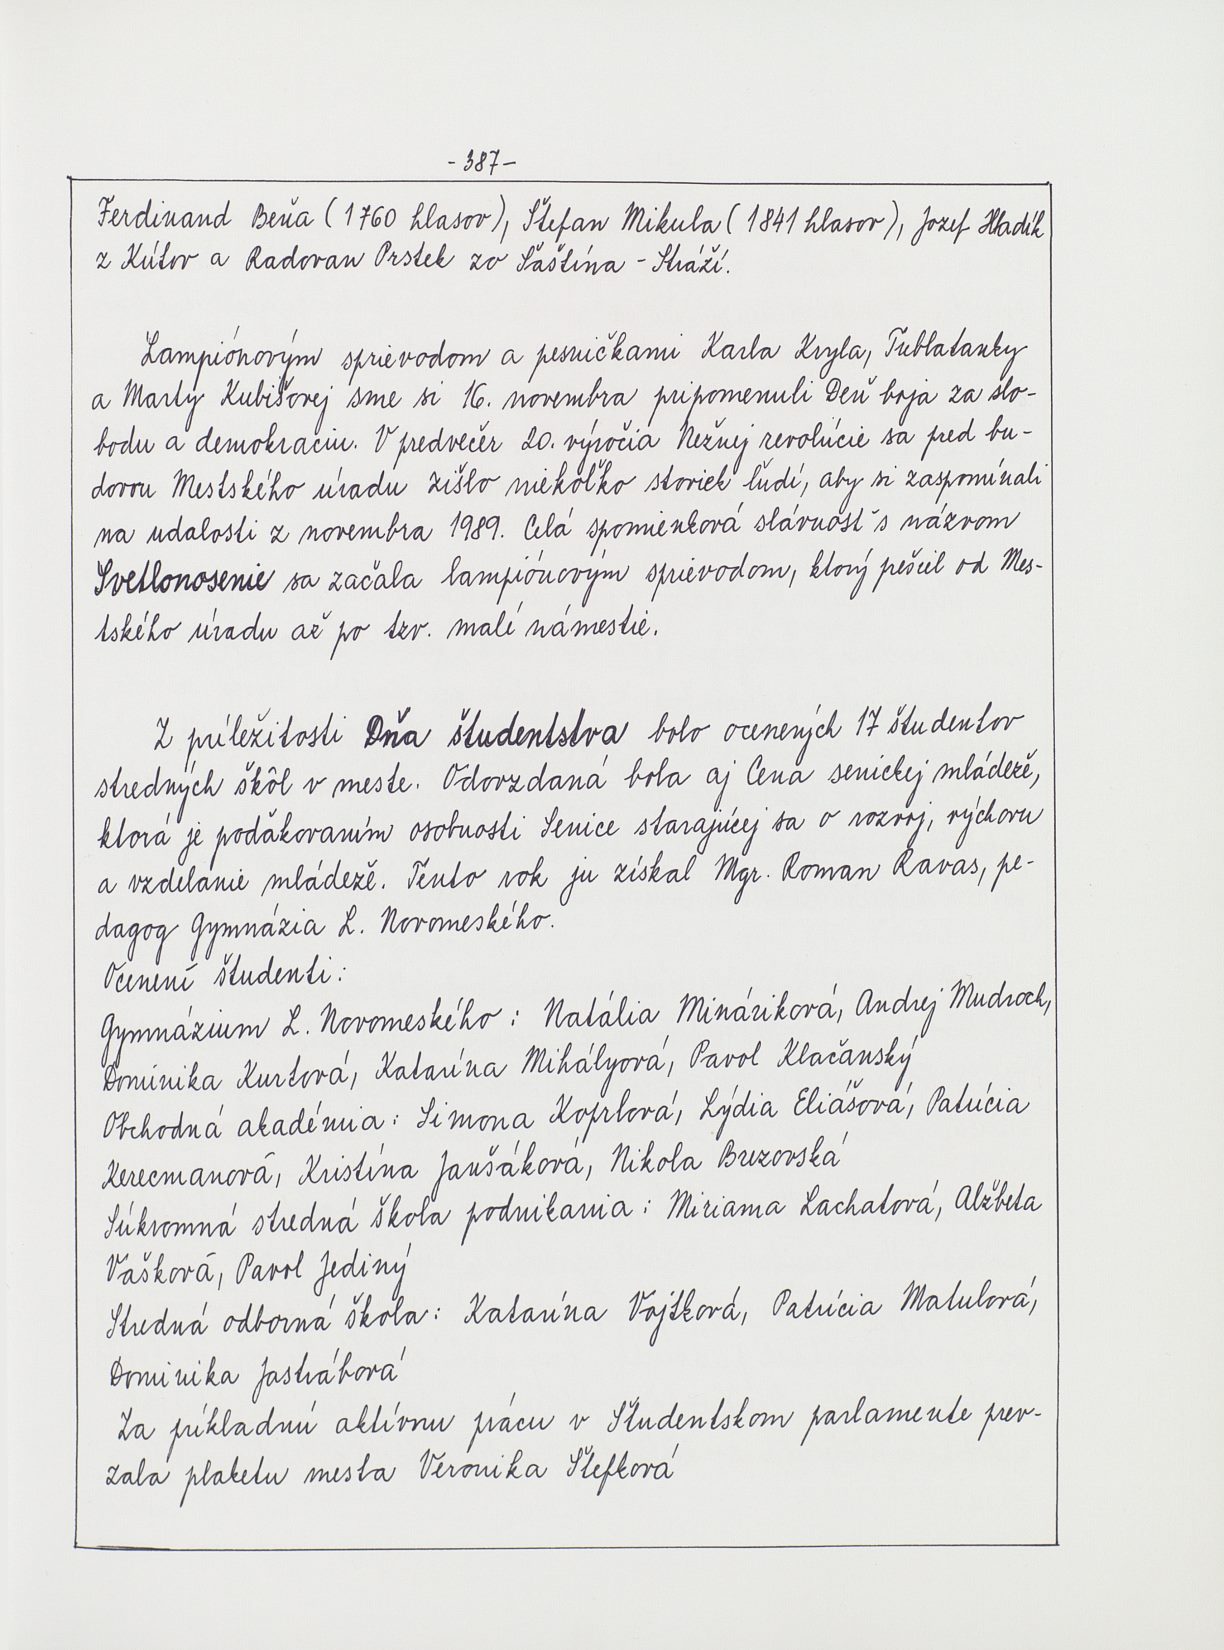 - 387 -
Ferdinand Beňa (1760 hlasov), Štefan Mikula (1841 hlasov), Jozef Hladík
z Kútov a Radovan Prstek zo Šaštína - Stráží.
Lampiónovým sprievodom a pesničkami Karla Kryla, Tublatanky
a Marty Kubišovej sme si 16. novembra pripomenuli Deň boja za slo-
bodu a demokraciu. V predvečer 20. výročia Nežnej revolúcie sa pred bu-
dovou Mestského úradu zišlo niekoľko stoviek ľudí, aby si zaspomínali
na udalosti z novembra 1989. Celá spomienková slávnosť s názvom
Svetlonosenie sa začala lampiónovým sprievodom, ktorý pešiel od Mes-
tského úradu až po tzv. malé námestie.
Z príležitosti Dňa študentstva bolo ocenených 17 študentov
stredných škôl v meste. Odovzdaná bola aj Cena senickej mládeže,
ktorá je poďakovaním osobnosti Senice starajúcej sa o rozvoj, výchovu
a vzdelanie mládeže. Tento rok ju získal Mgr. Roman Ravas, pe-
dagog Gymnázia L. Novomeského.
Ocenení študenti:
Gymnázium L. Novomeského: Natália Mináriková, Andrej Mudroch,
Dominika Kurtová, Katarína Mihályová, Pavol Klačanský
Obchodná akadémia: Simona Koprlová, Lýdia Eliášová, Patrícia
Kerecmanová, Kristína Janšáková, Nikola Brezovská
Súkromná stredná škola podnikania: Miriama Lachatová, Alžbeta
Vašková, Pavol Jediný
Stredná odborná škola: Katarína Vojtková, Patrícia Matulová,
Dominika Jastrábová
Za príkladnú aktívnu prácu v Študentskom parlamente prev-
zala plaketu mesta Veronika Štefková